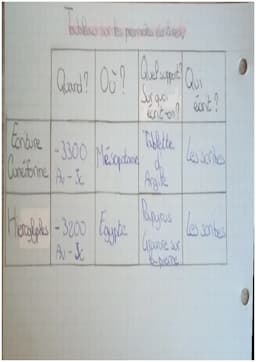 Tableau sur les premières écritures
Quand? Où? Quel support? Qui
Sur quoi écrit?
écrit-on?
Écriture -3300 Mésopotamie Tablette Les scribes
Cunéiforme Av-JC d'
Argile
Hiéroglyphes -3200 Égypte Papyrus Les scribes
Av-JC Gravure sur
la pierre